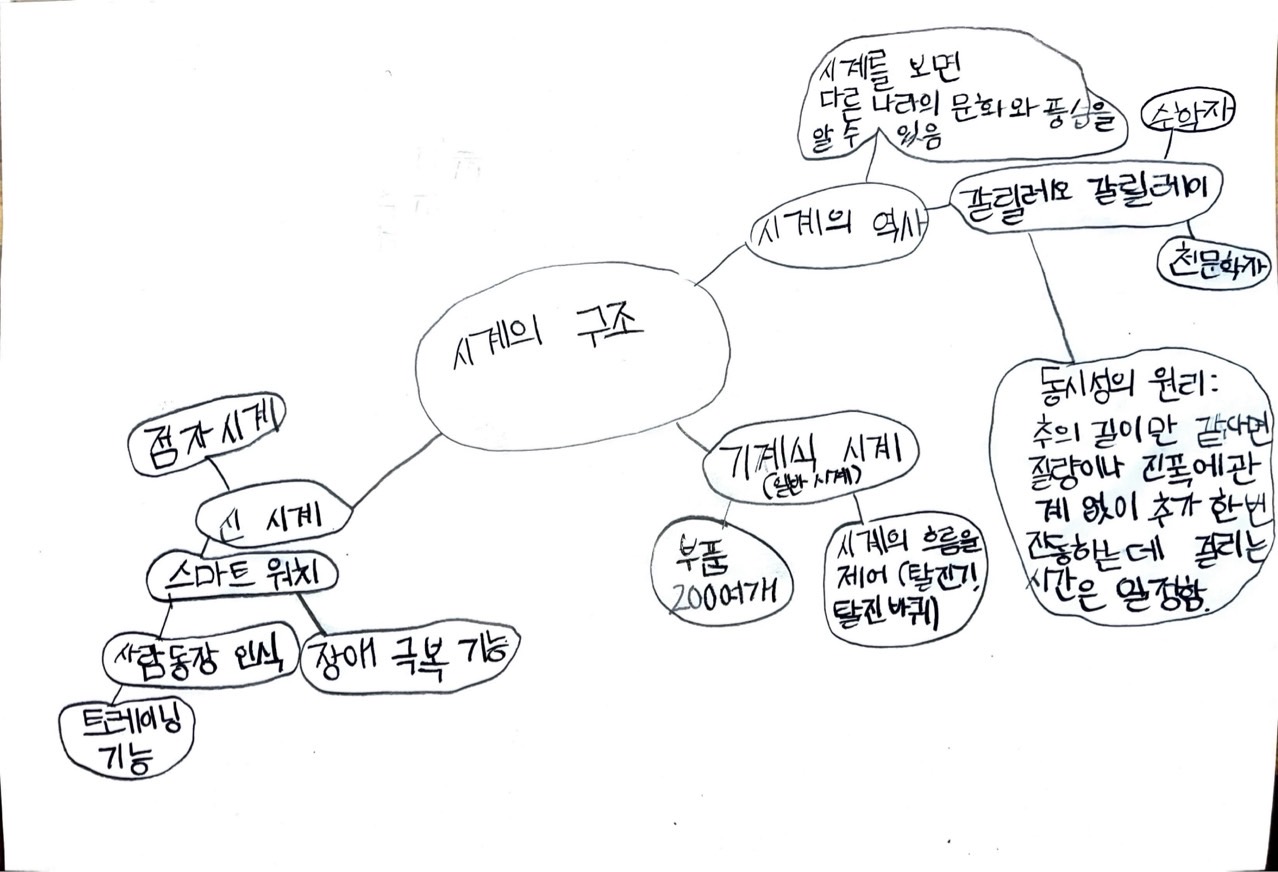 시계를 보면
다른 나라의 문화와 풍습을
알 수 있음
수학자
갈릴레오 갈릴레이
시계의 역사
천문학자
시계의 구조
동시성의 원리:
추의 길이만 같다면
질량이나 진폭에 관
계 없이 추가 한 번
진동하는 데 걸리는
시간은 일정함.
점자 시계
기계식 시계
(일반 시계)
신 시계
부품
200여개
시계의 흐름을
제어 (탈진기,
탈진 바퀴)
스마트 워치
사람 동장 인식
장애 극복 기능
트레이닝
기능